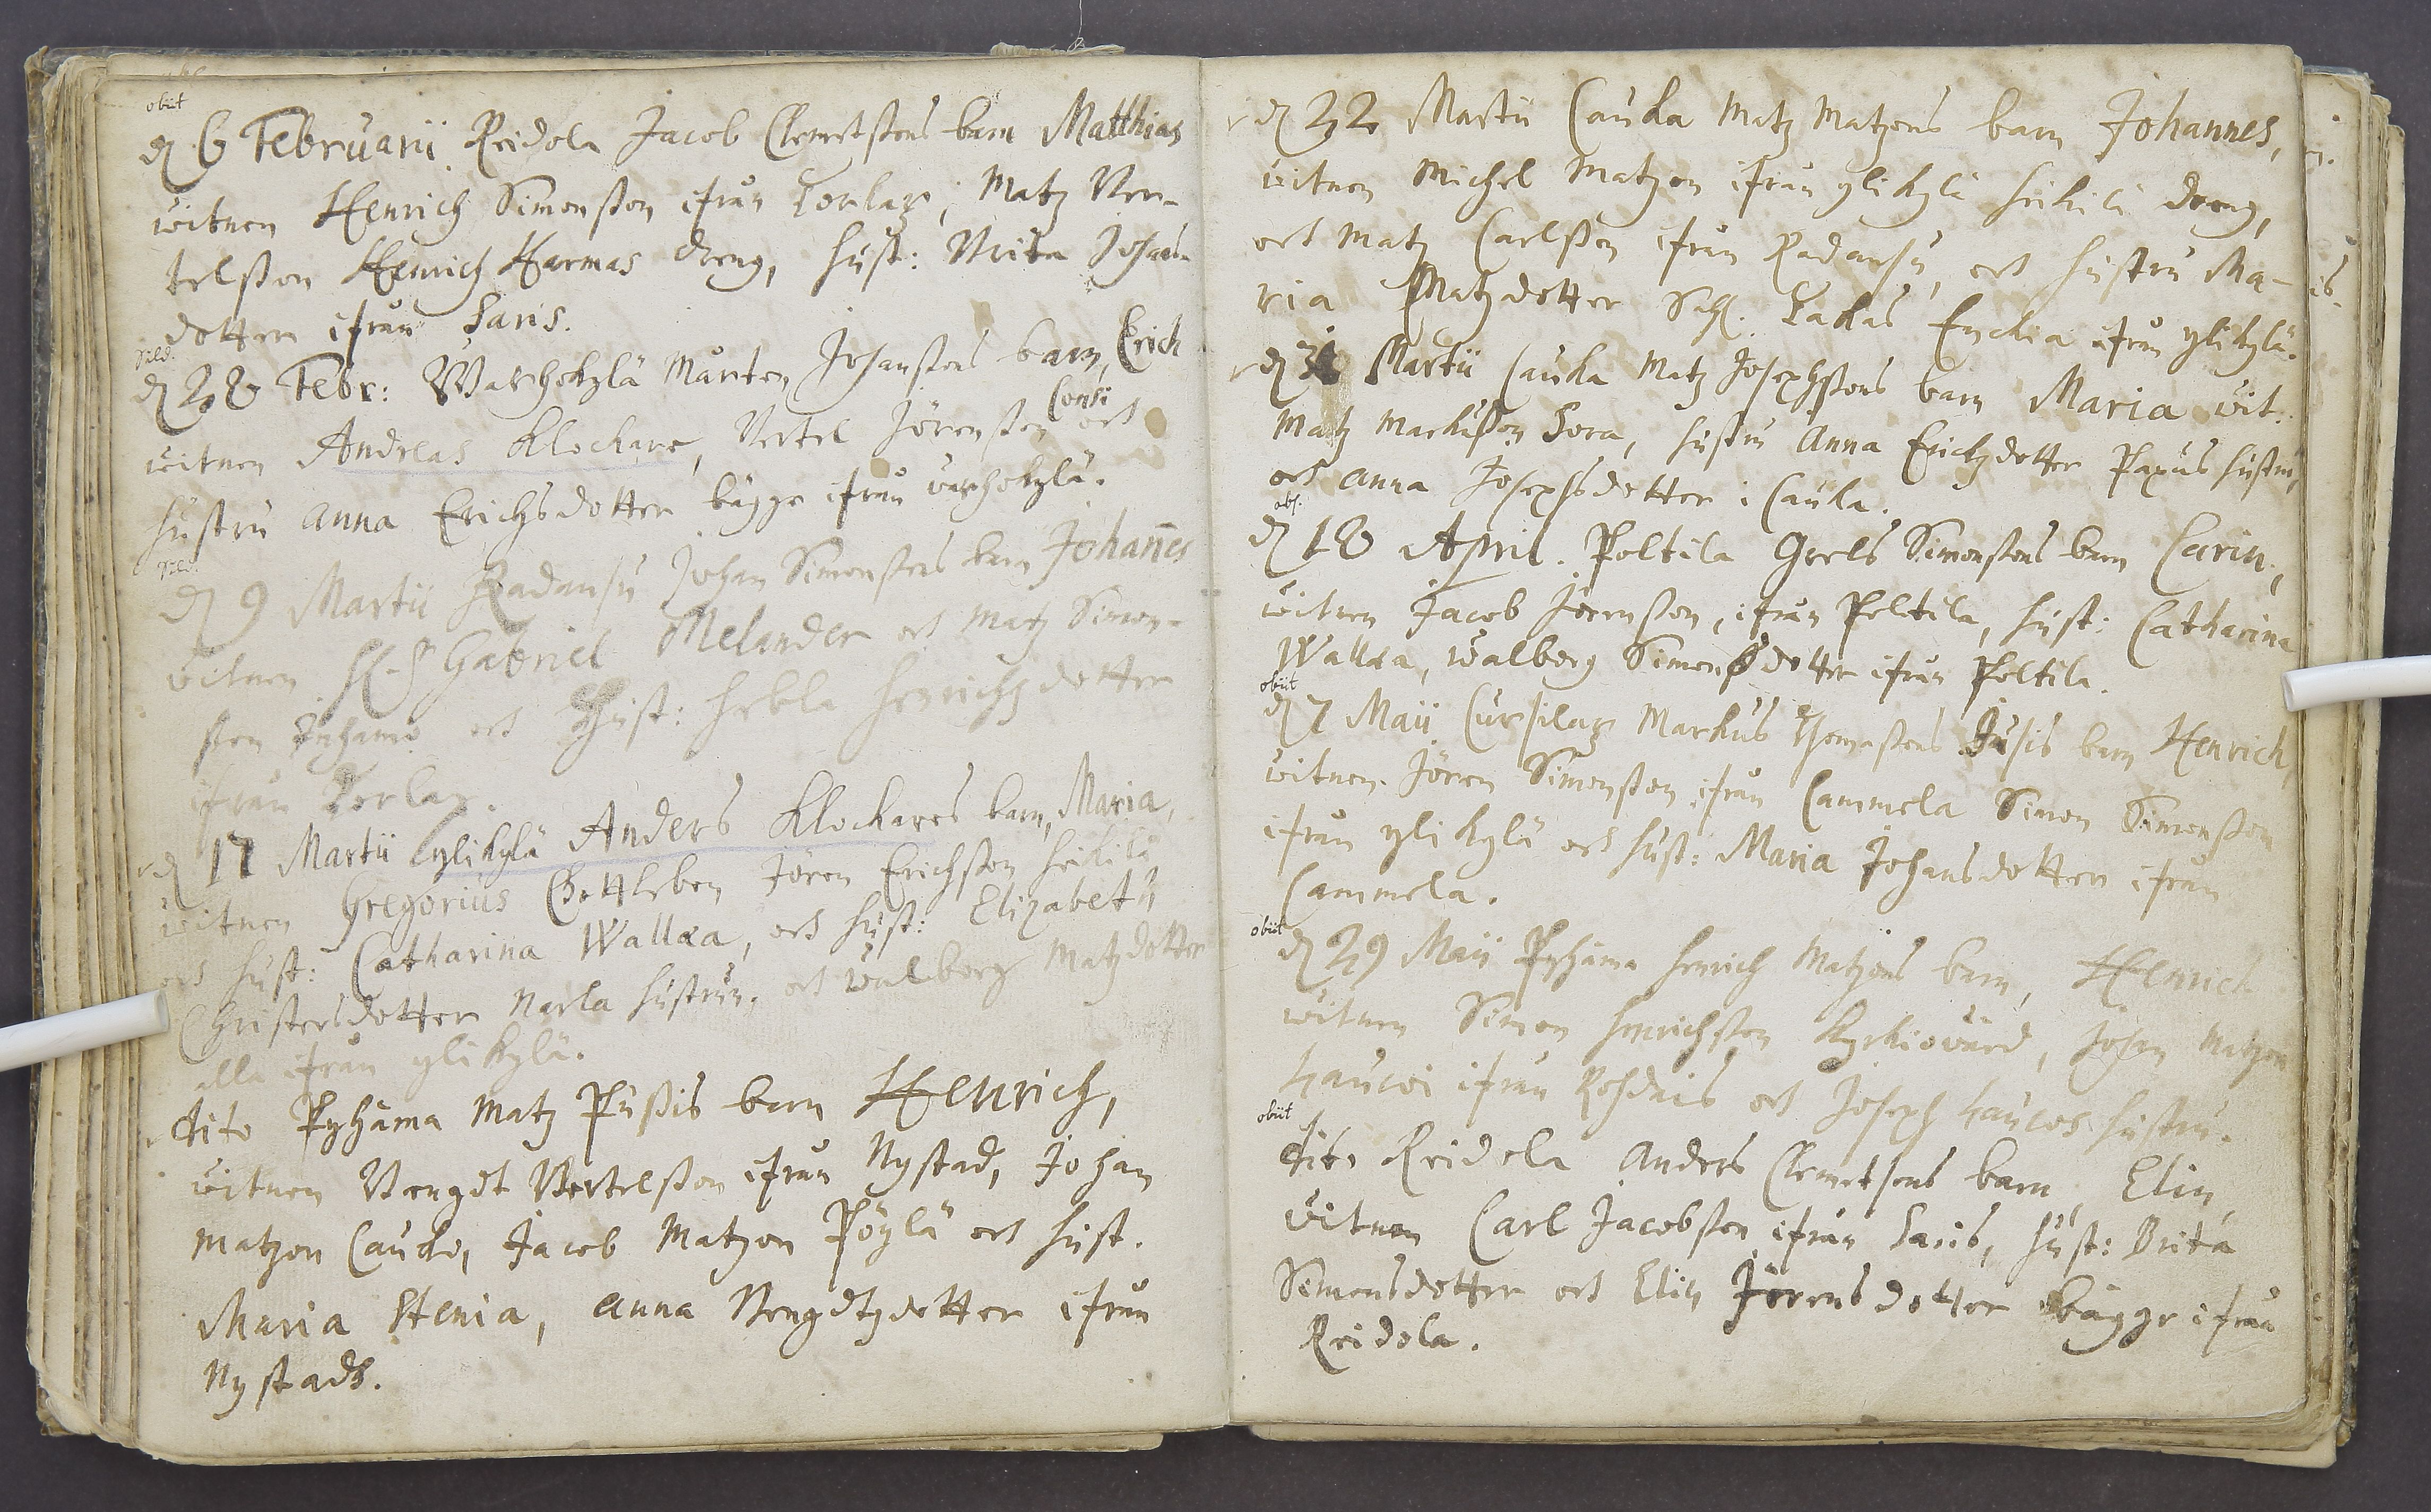 obiit
d 6 Februarii Reidola Jacob Clemetssons barn Matthias
witnen Henrich Simonsson ifrån Torlax; Matz Ber-
telsson Henrich Harmas dreng, hust: Brita Johans-
dotter ifrån Saris.
d 28 Febr: Warhokylä Mårten Johanssons barn, Erich
witnen Andreas Klockare, Bertel Jörensson Consi och
hustru Anna Erichsdotter bägge ifrån warhokylä.
d 9 Martii Radansu Johan Simonssons barn Johan̄es
witnen Gabriel Melander och Matz Simon-
sson och Hust: Hebla Henrichzdotter
ifrån Torlax.
d 17 Martii ylikylä Anders Klockares barn, Maria,
witnen Gregorius Gottleben Jören Erichsson Heikilä
och hust: Catharina Wallæa, och hust: Elizabeth
Christersdotter Narla hustru, och walborg Matzdotter
alla ifrån ylikylä.
dito Pyhäma Matz Pussis barn Henrich,
witnen Bengdt Bertelsson ifrån Nystad, Johan
Matzon Caucko, Jacob Matzon Pöylä och hust.
Maria Stenia, Anna Bengdtzdotter ifrån
Nystadh.
d 22 Martii Cauka Matz Matzons barn Johannes,
witnen Michel Matzon ifrån ylikylä heikilä dreng,
och Matz Carlsson ifrån Radansu, och hustru Ma-
ria Matzdotter Sahl. Lakas Enckia ifrån ylikylä.
d 31 Martii Cauka Matz Josephssons barn Maria wit:
Matz Markusson Sora, hustru Anna Erichzdotter Papus hustru,
och Anna Josephsdotter i Cauka.
ob.
d 18 April. Poltila Grels Simonssons barn Carin,
witnen Jacob Jörensson, ifrån Poltila, hust: Catharina
Wallæa, walborg Simonsdotter ifrån Poltila.
obiit
d 7 Maii Cursilax Markus Thomassons Jusis barn Henrich,
witnen. Jören Simonsson ifrån Cammela Simon Simonsson
ifrån ylikylä och hust: Maria Johansdotter ifrån
Cammela.
obiit
d 29 Maii Pyhäma Henrich Matzons barn, Henrich
witnen Simon Henrichsson Kyrkiowärd, Johan Matzon
Haucoi ifrån Rohdais och Joseph Haucos hustru.
obiit
dito Reidola Anders Clemetsons barn, Elin,
witnen Carl Jacobsson ifrån Saris, hust: Brita
Simonsdotter och Elin Jörensdotter bägge ifrån
Reidola.